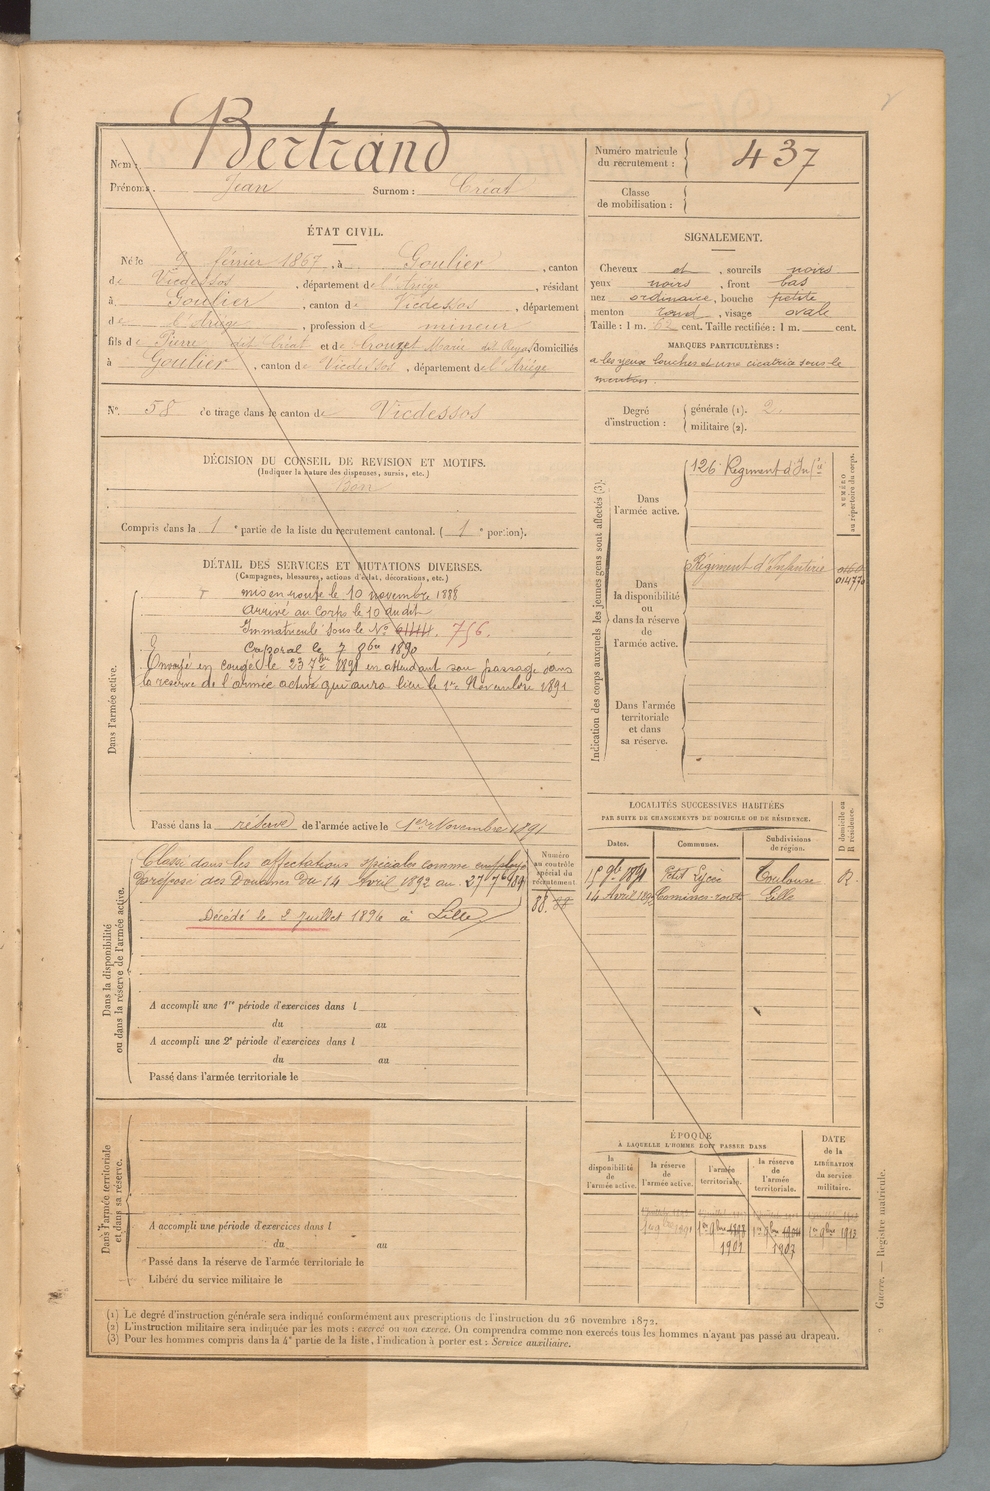 Nom : Bertrand
Prénoms : Jean Surnom : Créat
Numéro matricule du recrutement : 437
Classe de mobilisation :
ÉTAT CIVIL.
Né le 9 février 1867, à Goulier, canton
de Vicdessos, département de l'Ariège, résidant
à Goulier, canton de Vicdessos, département
de l'Ariège, profession de mineur
fils de Pierre dit Créat et de Crouzet Marie dit, domiciliés
à Goulier, canton de Vicdessos, département de l'Ariège
N° 58 de tirage dans le canton de Vicdessos
SIGNALEMENT.
Cheveux et, sourcils noirs
yeux noirs, front bas
nez ordinaire, bouche petite
menton rond, visage ovale
Taille : 1 m. 62 cent. Taille rectifiée : 1 m. cent.
MARQUES PARTICULIÈRES :
a les yeux louches et une cicatrice sous le
menton.
Degré d'instruction : générale (1). 2.
militaire (2).
DÉCISION DU CONSEIL DE REVISION ET MOTIFS.
(Indiquer la nature des dispenses, sursis, etc.)
Bon
Compris dans la 1e partie de la liste du recrutement cantonal. (1e portion).
DÉTAIL DES SERVICES ET MUTATIONS DIVERSES.
(Campagnes, blessures, actions d'éclat, décorations, etc.)
Dans l'armée active.
mis en route le 10 novembre 1888
Arrivé au Corps le 10 du dit
Immatriculé sous le N° 756.
Caporal le 7 8bre 1890
Envoyé en congé le 23 7bre 1891 en attendant son passage dans
la réserve de l'armée active qui aura lieu le 1er Novembre 1891
Passé dans la réserve de l'armée active le 1er Novembre 1891
Indication des corps auxquels les jeunes gens sont affectés (3).
NUMÉRO au répertoire du corps.
Dans l'armée active.
126 Régiment d'Infie
Dans la disponibilité ou dans la réserve de l'armée active.
Régiment d'Infanterie
Dans l'armée territoriale et dans sa réserve.
LOCALITÉS SUCCESSIVES HABITÉES
PAR SUITE DE CHANGEMENTS DE DOMICILE OU DE RÉSIDENCE.
D domicile ou R résidence.
Dates. Communes. Subdivisions de région.
9bre 1891 Petit Lycée Toulouse R.
14 Avril 1892 Comines Lille
Dans la disponibilité ou dans la réserve de l'armée active.
Classé dans les affectations spéciales comme employé
préposé des Douanes du 14 Avril 1892 au 27 7bre 189
Décédé le 2 juillet 1894 à Lille
Numéro au contrôle spécial du recrutement
88. 88
A accompli une 1re période d'exercices dans l
du au
A accompli une 2e période d'exercices dans l
du au
Passé dans l'armée territoriale le
Dans l'armée territoriale et dans sa réserve.
A accompli une période d'exercices dans l
du au
Passé dans la réserve de l'armée territoriale le
Libéré du service militaire le
ÉPOQUE
À LAQUELLE L'HOMME DOIT PASSER DANS
la disponibilité de l'armée active.
la réserve de l'armée active.
l'armée territoriale.
la réserve de l'armée territoriale.
DATE de la LIBÉRATION du service militaire.
1er 9bre 1891 1er 9bre 1er 9bre 1er 9bre 1913
1901 1907
Guerre. — Registre matricule.
(1) Le degré d'instruction générale sera indiqué conformément aux prescriptions de l'instruction du 26 novembre 1872.
(2) L'instruction militaire sera indiquée par les mots : exercé ou non exercé. On comprendra comme non exercés tous les hommes n'ayant pas passé au drapeau.
(3) Pour les hommes compris dans la 4e partie de la liste, l'indication à porter est : Service auxiliaire.